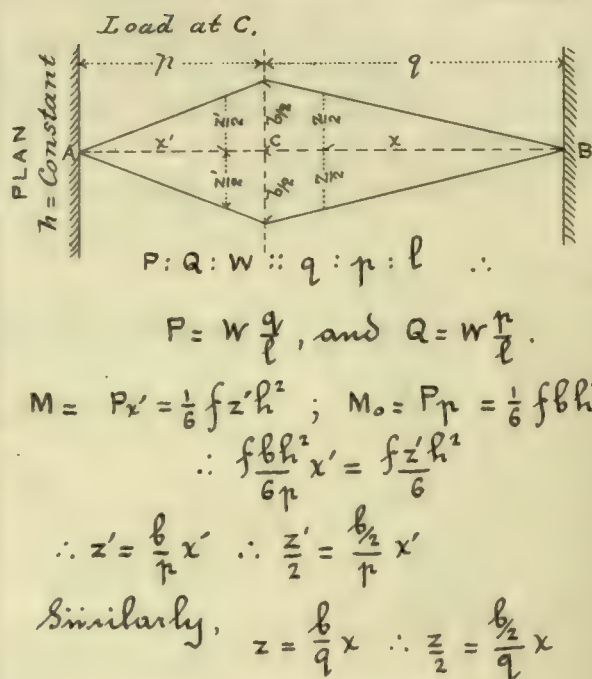 Load at C.
p q
PLAN
h = Constant
A x' C x B
z'/2 b/2 z/2
z'/2 b/2 z/2
P : Q : W :: q : p : l ∴
P = W q/l , and Q = W p/l .
M = Px' = 1/6 f z' h² ; M₀ = Pp = 1/6 f b h
∴ fbh²/6p x' = f z' h²/6
∴ z' = b/p x' ∴ z'/2 = b/2/p x'
Similarly, z = b/q x ∴ z/2 = b/2/q x